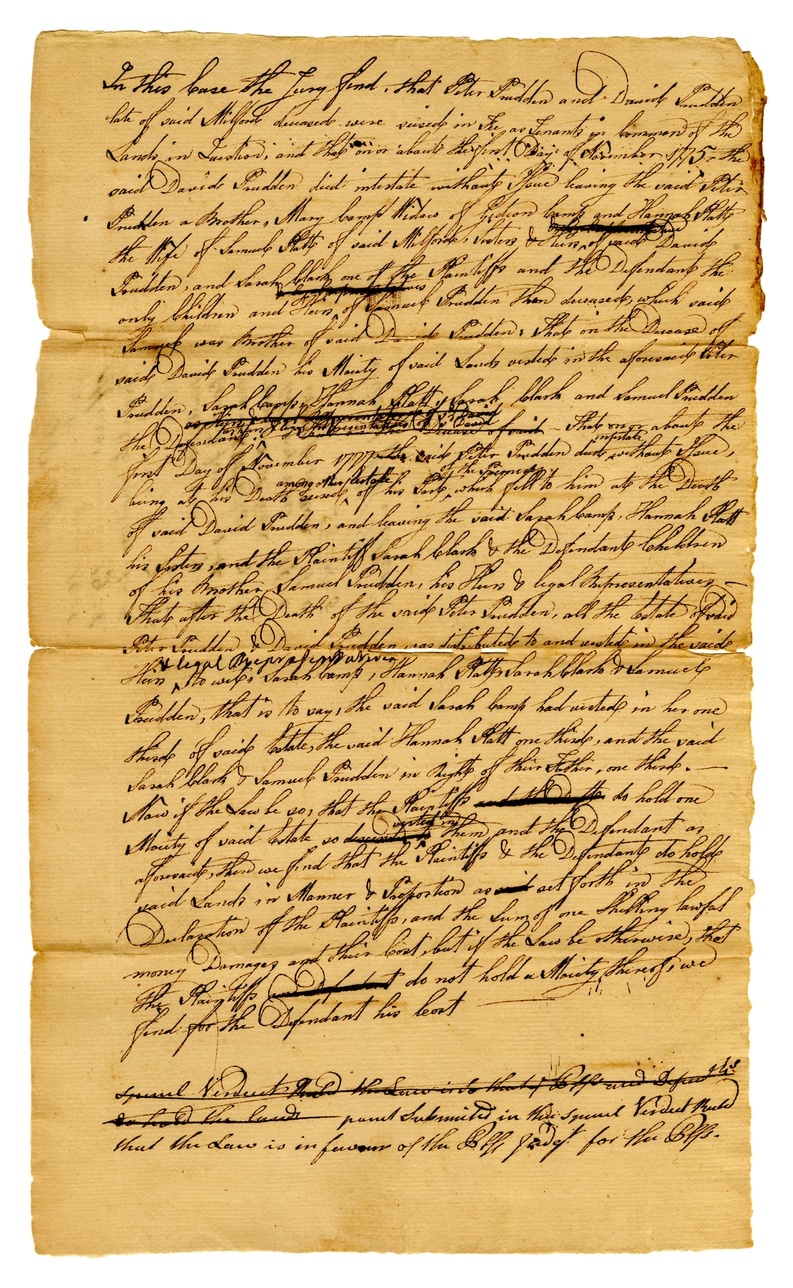 In this Case the Jury find, that Peter Prudden and David Prudden
late of said Milford deceased were seised in Fee as Tenants in Common of the
Lands in Question, and that on or about the first Day of November 1775 the
said David Prudden died intestate without Issue leaving the said Peter
Prudden a Brother, Mary Camp Widow of Gideon Camp and Hannah Platt
the Wife of Samuel Platt of said Milford, Sisters & Heirs of said David
Prudden, and Sarah Clark one of the Plaintiffs and the Defendant the
only Children and Heirs of Samuel Prudden then deceased, which said
Samuel was Brother of said David Prudden; That on the Decease of
said David Prudden his Moiety of said Lands vested in the aforesaid Peter
Prudden, Sarah Camp, Hannah Platt, Sarah Clark and Samuel Prudden
the Defendant That on or about the
first Day of November 1777 the said Peter Prudden died intestate without Issue,
being at his Death seised among other Estate of his Part of the Premises, which fell to him at the Death
of said David Prudden, and leaving the said Sarah Camp, Hannah Platt
his Sisters, and the Plaintiff Sarah Clark & the Defendant Children
of his Brother Samuel Prudden, his Heirs & legal Representatives,
That after the Death of the said Peter Prudden, all the Estate of said
Peter Prudden & David Prudden was distributed to and vested in the said
Heirs & legal Representatives to wit, Sarah Camp, Hannah Platt, Sarah Clark & Samuel
Prudden, that is to say, the said Sarah Camp had vested in her one
third of said Estate, the said Hannah Platt one third, and the said
Sarah Clark & Samuel Prudden in Right of their Father, one third. —
Now if the Law be so, that the Plaintiffs do hold one
Moiety of said Estate so vested in them and the Defendant as
aforesaid, then we find that the Plaintiffs & the Defendant do hold
said Lands in Manner & Proportion as set forth in the
Declaration of the Plaintiffs, and the Sum of one Shilling lawful
money Damages and their Cost, but if the Law be otherwise, that
the Plaintiffs do not hold a Moiety thereof, we
find for the Defendant his Cost
special Verdict that the Law is so that ye Plfs and
do hold the lands point submitted in this special Verdict
that the Law is in favour of the Plfs Judgt for the Plfs.